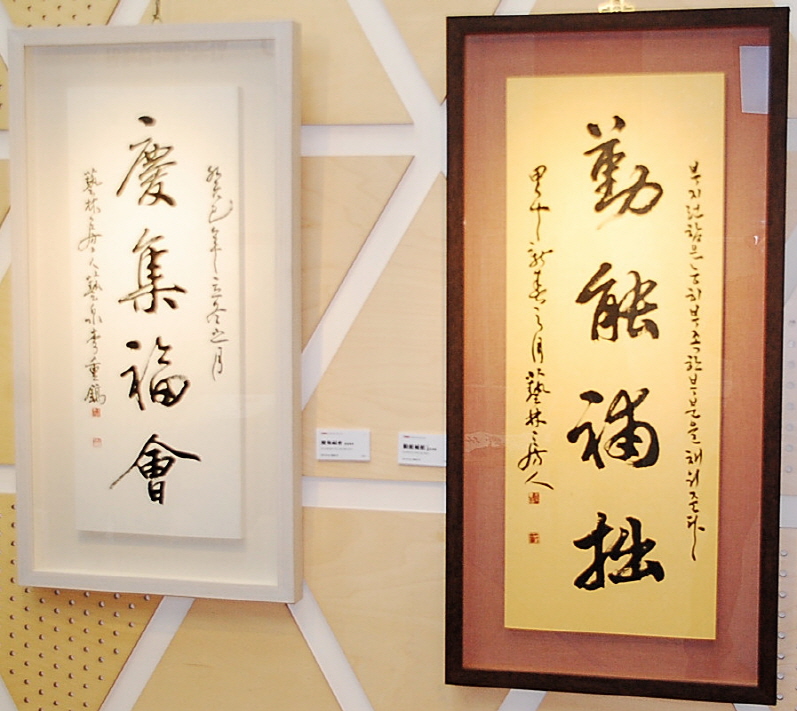 慶集福會
癸巳年立冬之月
藝林 人藝 李重
勤能補拙
부지런함은 능히 부족한 부분을 채워준다
甲午新春之月藝林 人